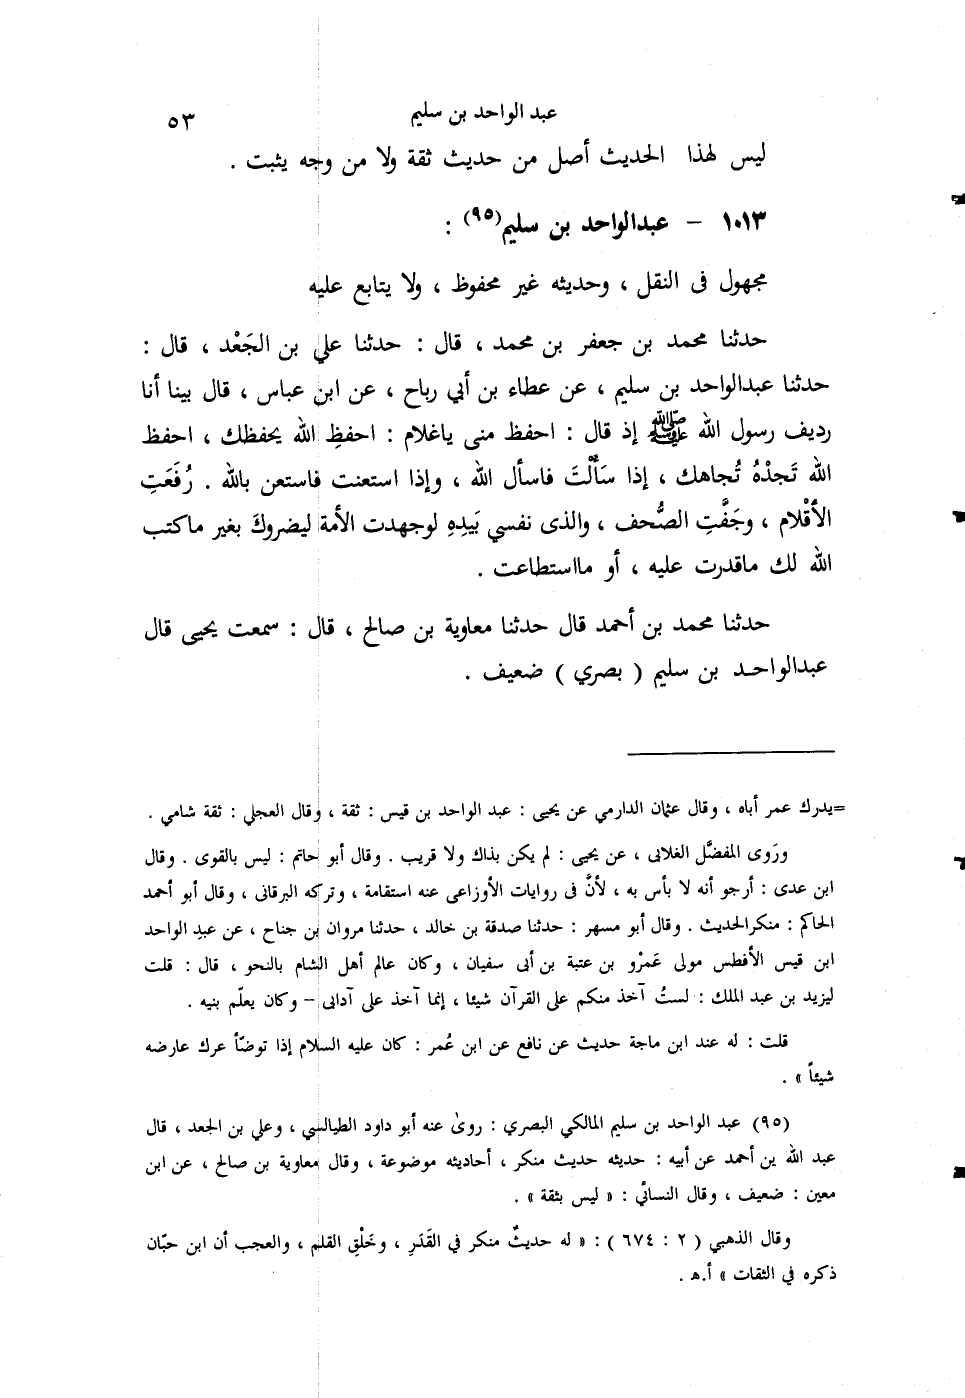 عبد الواحد بن سليم
٥٣
ليس لهذا الحديث أصل من حديث ثقة ولا من وجه يثبت .
١٠١٣ – عبدالواحد بن سليم(٩٥) :
مجهول فى النقل ، وحديثه غير محفوظ ، ولا يتابع عليه
حدثنا محمد بن جعفر بن محمد ، قال : حدثنا علي بن الجَعْد ، قال :
حدثنا عبدالواحد بن سليم ، عن عطاء بن أبي رباح ، عن ابن عباس ، قال بينا أنا
رديف رسول الله ﷺ إذ قال : احفظ منى ياغلام : احفظِ الله يحفظك ، احفظ
الله تَجدْهُ تُجاهك ، إذا سَألْتَ فاسأل الله ، وإذا استعنت فاستعن بالله . رُفَعَتِ
الأقْلام ، وجَفَّتِ الصُّحف ، والذى نفسي بَيدِهِ لوجهدت الأمة ليضروكَ بغير ماكتب
الله لك ماقدرت عليه ، أو مااستطاعت .
حدثنا محمد بن أحمد قال حدثنا معاوية بن صالح ، قال : سمعت يحيى قال
عبدالواحد بن سليم ( بصري ) ضعيف .
=يدرك عمر أباه ، وقال عثمان الدارمي عن يحيى : عبد الواحد بن قيس : ثقة ، وقال العجلي : ثقة شامي .
ورَوى المفضَّل الغلابى ، عن يحيى : لم يكن بذاك ولا قريب . وقال أبو حاتم : ليس بالقوى . وقال
ابن عدى : أرجو أنه لا بأس به ، لأنَّ فى روايات الأوزاعى عنه استقامة ، وتركه البرقانى ، وقال أبو أحمد
الحاكم : منكرالحديث . وقال أبو مسهر : حدثنا صدقة بن خالد ، حدثنا مروان بن جناح ، عن عبد الواحد
ابن قيس الأفطس مولى عَمرْو بن عتبة بن أبى سفيان ، وكان عالم أهل الشام بالنحو ، قال : قلت
ليزيد بن عبد الملك : لستُ آخذ منكم على القرآن شيئا ، إنما آخذ على آدابى – وكان يعلّم بنيه .
قلت : له عند ابن ماجة حديث عن نافع عن ابن عُمر : كان عليه السلام إذا توضّأ عرك عارضه
شيئاً » .
(٩٥) عبد الواحد بن سليم المالكي البصري : روىٰ عنه أبو داود الطيالسي ، وعلي بن الجعد ، قال
عبد الله بن أحمد عن أبيه : حديثه حديث منكر ، أحاديثه موضوعة ، وقال معاوية بن صالح ، عن ابن
معين : ضعيف ، وقال النسائي : « ليس بثقة » .
وقال الذهبي ( ٢ : ٦٧٤ ) : « له حديثٌ منكر في القَدَرِ ، وخَلْقِ القلم ، والعجب أن ابن حبّان
ذكره في الثقات » أ.هـ .